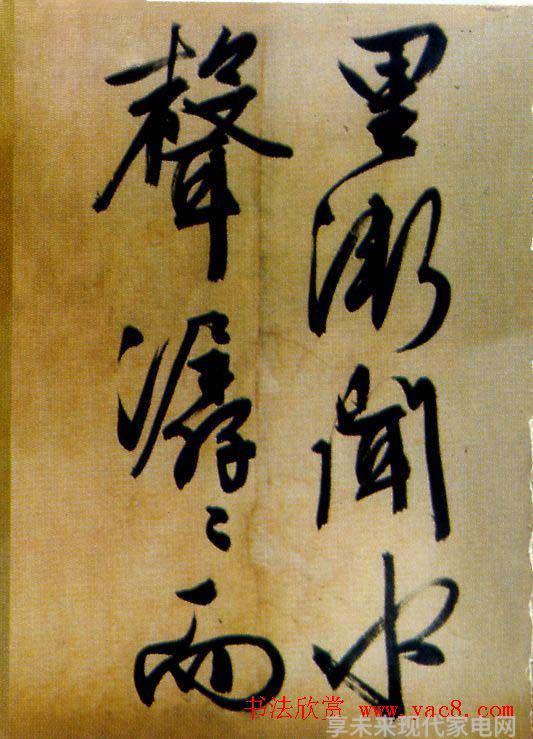 里渐闻水
声潺〻而
书法欣赏 www.yac8.com
享未来现代家电网